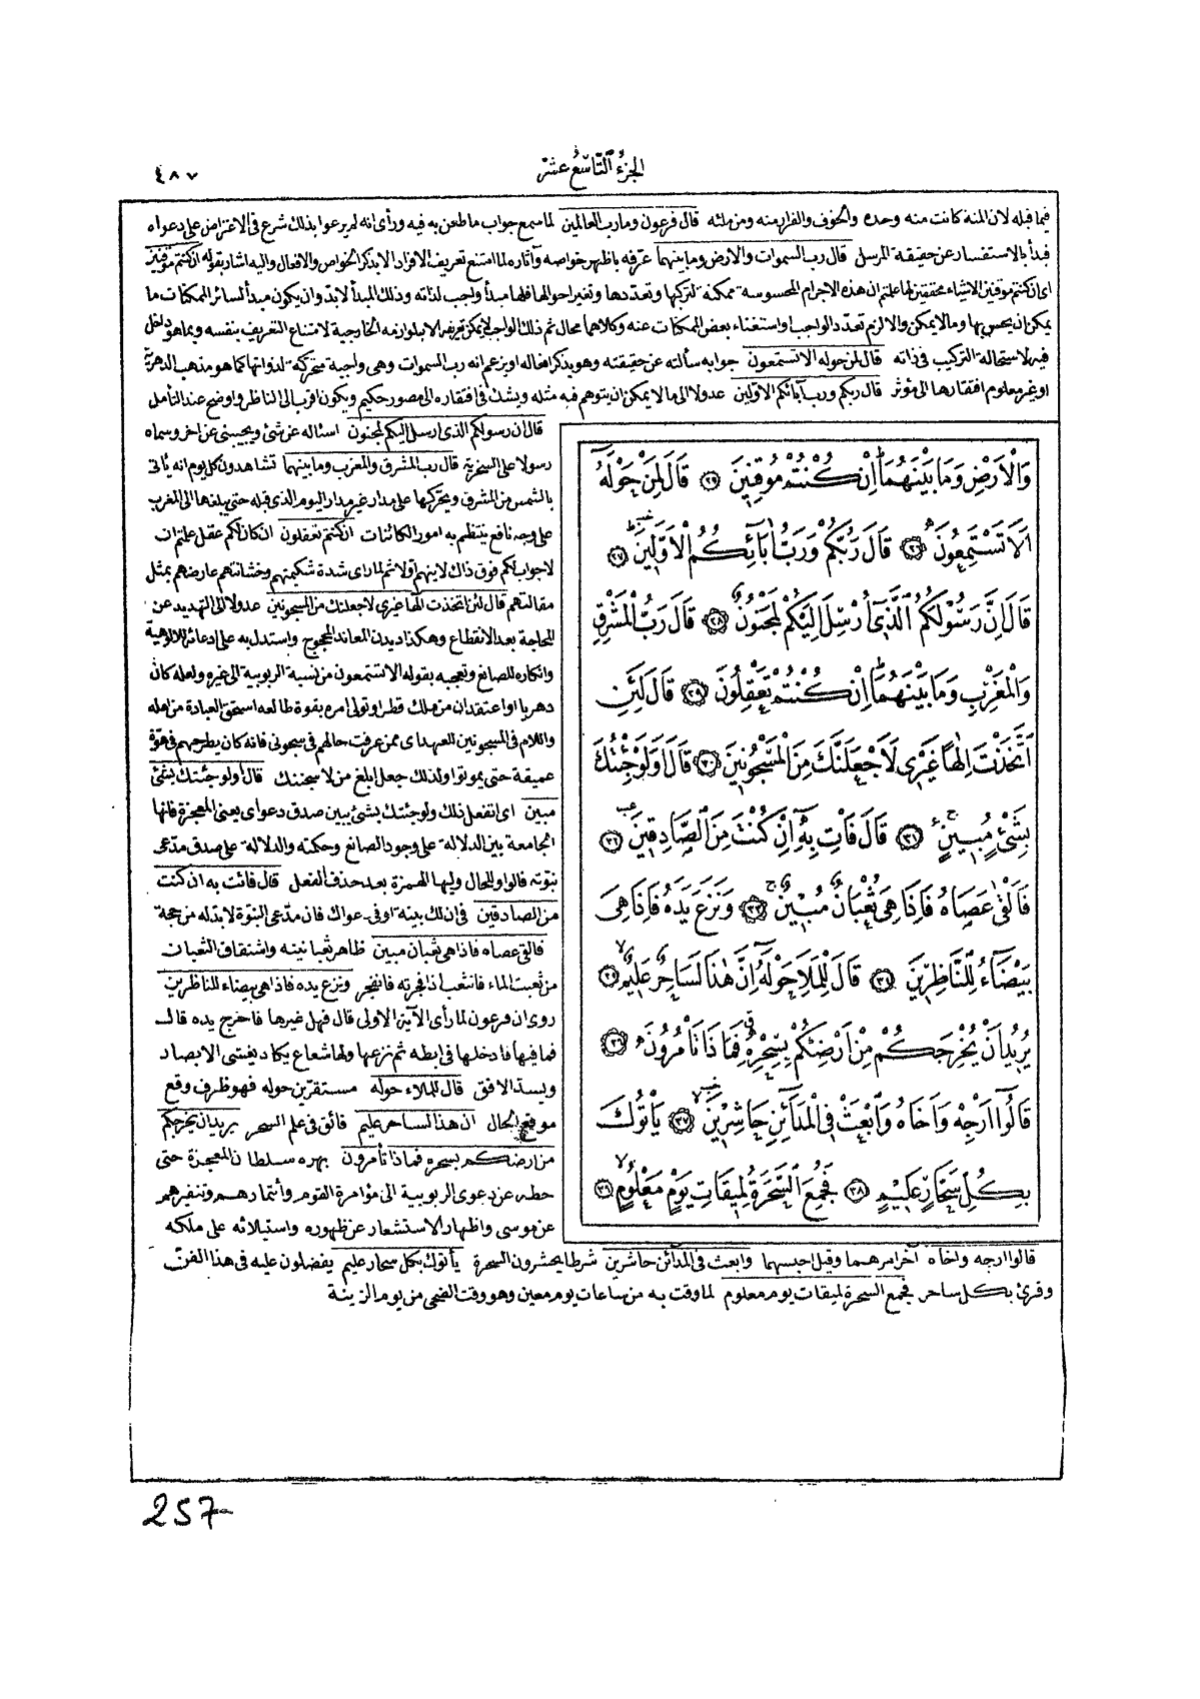 ٤٨٧
الجزء التاسع عشر
فيما قبله لان المنة كانت منه وحده والخوف والفرار منه ومن ملئه قال فرعون وما رب العالمين لما سمع جواب ما طعن به فيه ورأى انه لم يرعو بذلك شرع في الاعتراض على دعواه
فبدأ بالاستفسار عن حقيقة المرسل قال رب السموات والارض وما بينهما عرفه باظهر خواصه وآثاره لما امتنع تعريف الافراد الا بذكر الخواص والافعال واليه اشار بقوله ان كنتم موقنين
اى ان كنتم موقنين الاشياء محققين لها علمتم ان هذه الاجرام المحسوسة ممكنة لتركبها وتعددها وتغير احوالها فلها مبدأ واجب لذاته وذلك المبدأ لابد وان يكون مبدأ لسائر الممكنات ما
يمكن ان يحس بها وما لا يمكن والا لزم تعدد الواجب او استغناء بعض الممكنات عنه وكلاهما محال ثم ذلك الواجب لا يمكن تعريفه الا بلوازمه الخارجية لامتناع التعريف بنفسه وبما هو داخل
فيه لاستحالة التركيب فى ذاته قال لمن حوله الا تستمعون جوابه سألته عن حقيقته وهو يذكر افعاله او يزعم انه رب السموات وهى واجبة متحركة لذواتها كما هو مذهب الدهرية
او غير معلوم افتقارها الى مؤثر قال ربكم ورب آبائكم الاولين عدولا الى ما لا يمكن ان يتوهم فيه مثله ويشك فى افتقاره الى مصور حكيم ويكون اقرب الى الناظر واوضح عند التأمل
وَالْاَرْضِ وَمَا بَيْنَهُمَاۜ اِنْ كُنْتُمْ مُوقِنِينَ ٢٤ قَالَ لِمَنْ حَوْلَهُٓ
اَلَا تَسْتَمِعُونَ ٢٥ قَالَ رَبُّكُمْ وَرَبُّ اٰبَٓائِكُمُ الْاَوَّلِينَ ٢٦
قَالَ اِنَّ رَسُولَكُمُ الَّذِٓى اُرْسِلَ اِلَيْكُمْ لَمَجْنُونٌ ٢٧ قَالَ رَبُّ الْمَشْرِقِ
وَالْمَغْرِبِ وَمَا بَيْنَهُمَاۜ اِنْ كُنْتُمْ تَعْقِلُونَ ٢٨ قَالَ لَئِنِ
اتَّخَذْتَ اِلٰهًا غَيْرِى لَاَجْعَلَنَّكَ مِنَ الْمَسْجُونِينَ ٢٩ قَالَ اَوَلَوْ جِئْتُكَ
بِشَىْءٍ مُبِينٍ ٣٠ قَالَ فَأْتِ بِهِٓ اِنْ كُنْتَ مِنَ الصَّادِقِينَ ٣١
فَاَلْقٰى عَصَاهُ فَاِذَا هِىَ ثُعْبَانٌ مُبِينٌ ٣٢ وَنَزَعَ يَدَهُ فَاِذَا هِىَ
بَيْضَٓاءُ لِلنَّاظِرِينَ ٣٣ قَالَ لِلْمَلَاِ حَوْلَهُٓ اِنَّ هٰذَا لَسَاحِرٌ عَلِيمٌ ٣٤
يُرِيدُ اَنْ يُخْرِجَكُمْ مِنْ اَرْضِكُمْ بِسِحْرِهِ فَمَاذَا تَأْمُرُونَ ٣٥
قَالُٓوا اَرْجِهْ وَاَخَاهُ وَابْعَثْ فِى الْمَدَٓائِنِ حَاشِرِينَ ٣٦ يَأْتُوكَ
بِكُلِّ سَحَّارٍ عَلِيمٍ ٣٧ فَجُمِعَ السَّحَرَةُ لِمِيقَاتِ يَوْمٍ مَعْلُومٍ ٣٨
قال ان رسولكم الذى ارسل اليكم لمجنون اسئاله عن شئ ويجيبنى عن اخر وسماه
رسولا على السخرية قال رب المشرق والمغرب وما بينهما تشاهدون كل يوم انه يأتى
بالشمس من المشرق ويحركها على مدار غير مدار اليوم الذى قبله حتى يبلغها الى المغرب
على وجه نافع ينتظم به امور الكائنات ان كنتم تعقلون ان كان لكم عقل علمتم ان
لا جواب لكم فوق ذاك لاينهم اولا ثم لما رأى شدة شكيمتهم وخشانتهم عارضهم بمثل
مقالتهم قال لئن اتخذت الها غيرى لاجعلنك من المسجونين عدولا الى التهديد عن
المحاجة بعد الانقطاع وهكذا ديدن المعاند المحجوج واستدل به على ادعائه الالوهية
وانكاره للصانع وتعجبه بقوله الا تستمعون من نسبة الربوبية الى غيره ولعله كان
دهريا او اعتقد ان من ملك قطرا وتولى امره بقوة طالعه استحق العبادة من اهله
واللام فى المسجونين للعهد اى ممن عرفت حالهم فى سجونى فانه كان يطرحهم فى هوة
عميقة حتى يموتوا ولذلك جعل ابلغ من لاسجننك قال اولو جئتك بشئ
مبين اى اتفعل ذلك ولو جئتك بشئ يبين صدق دعواى يعنى المعجزة فانها
الجامعة بين الدلالة على وجود الصانع وحكمته والدلالة على صدق مدعى
نبوته فالواو للحال وليها الهمزة بعد حذف الفعل قال فائت به ان كنت
من الصادقين فى ان لك بينة او فى دعواك فان مدعى النبوة لابد له من حجة
فالقى عصاه فاذا هى ثعبان مبين ظاهر ثعبانيته واشتقاق الثعبان
من ثعبت الماء فانثعب اذا فجرته فانفجر ونزع يده فاذا هى بيضاء للناظرين
روى ان فرعون لما رأى الآية الاولى قال فهل غيرها فاخرج يده قال
فما فيها فادخلها فى ابطه ثم نزعها ولها شعاع يكاد يغشى الابصار
ويسد الافق قال للملاء حوله مستقرين حوله فهو ظرف وقع
موقع الحال ان هذا لساحر عليم فائق فى علم السحر يريد ان يخرجكم
من ارضكم بسحره فماذا تأمرون بهره سلطان المعجزة حتى
حطه عن دعوى الربوبية الى مؤامرة القوم وأتمارهم وتنفيرهم
عن موسى واظهار الاستشعار عن ظهوره واستيلائه على ملكه
قالوا ارجه واخاه آخر امرهما وقيل احبسهما وابعث فى المدائن حاشرين شرطا يحشرون السحرة يأتوك بكل سحار عليم يفضلون عليه فى هذا الفن
وقرئ بكل ساحر فجمع السحرة لميقات يوم معلوم لما وقت به من ساعات يوم معين وهو وقت الضحى من يوم الزينة
257